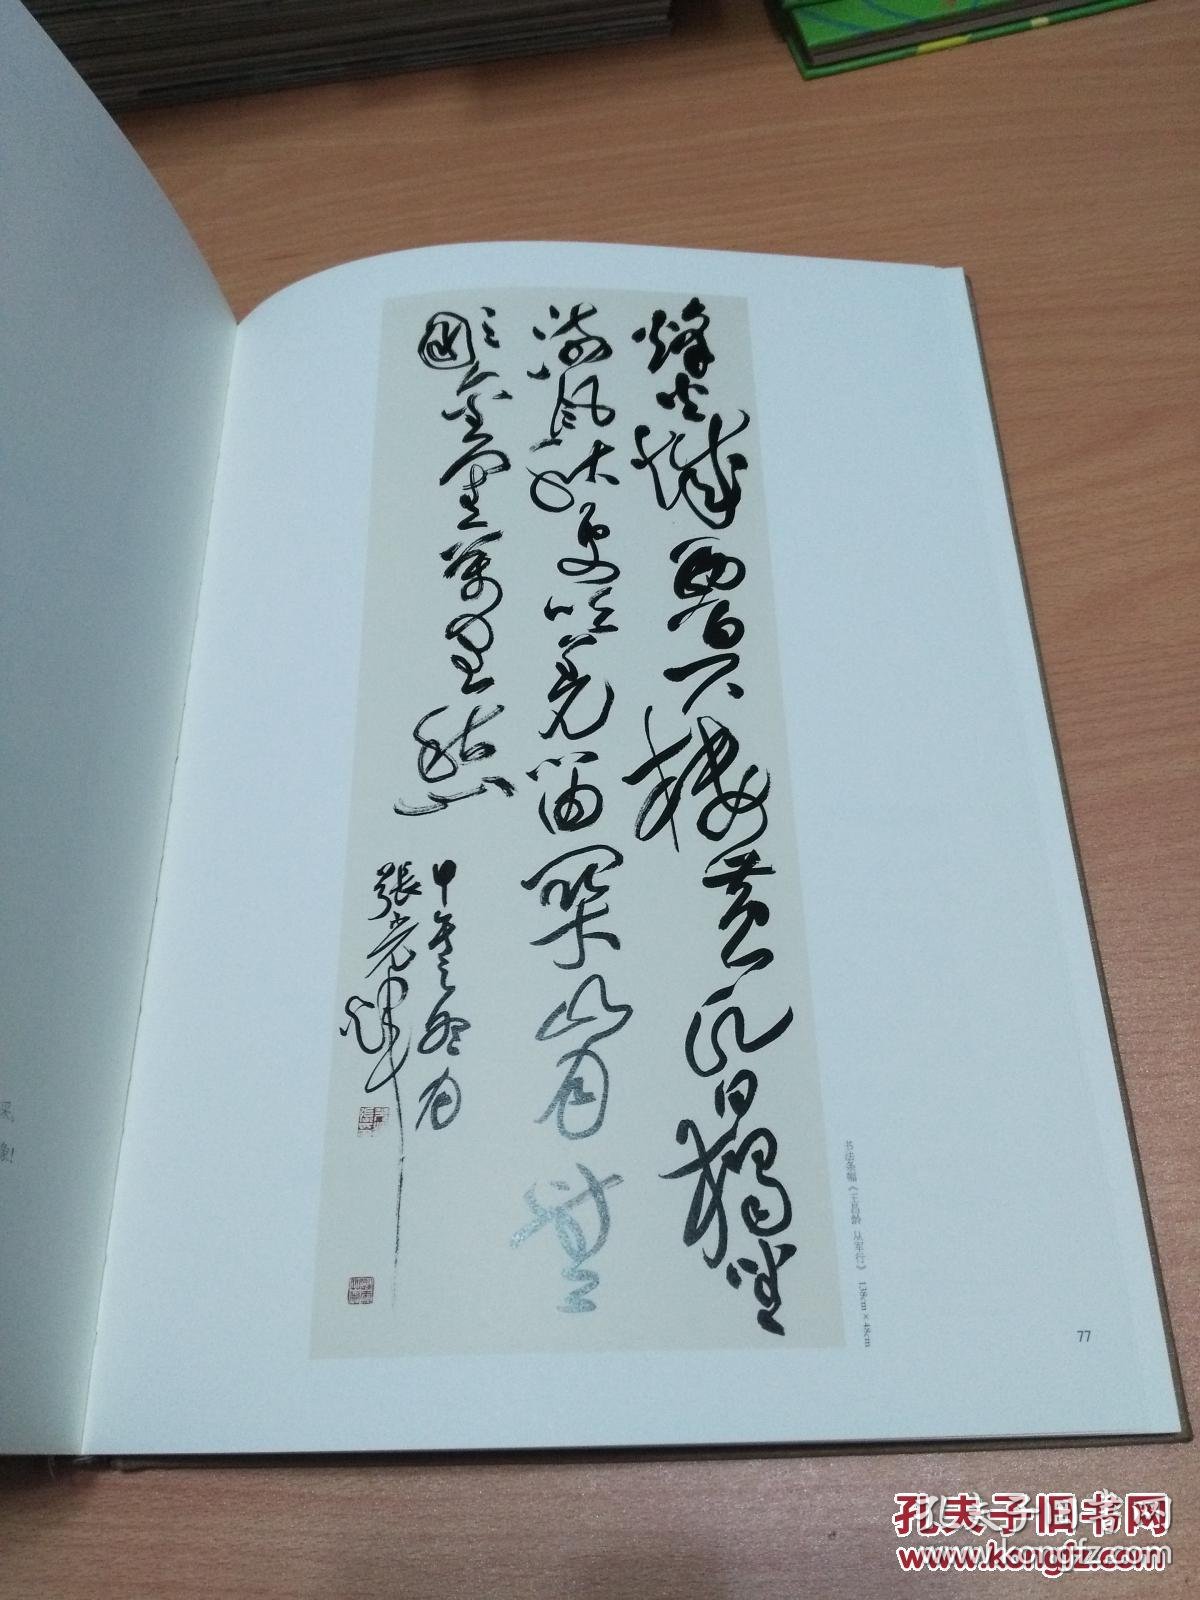 烽火城西百尺樓黄昏獨坐
海風秋更吹羌笛關山月無
金閨萬里愁
甲午之冬月
張光
书法条幅《王昌龄 从军行》 138cm×48cm
77
采,
象!
孔夫子旧书网
www.kongfz.com